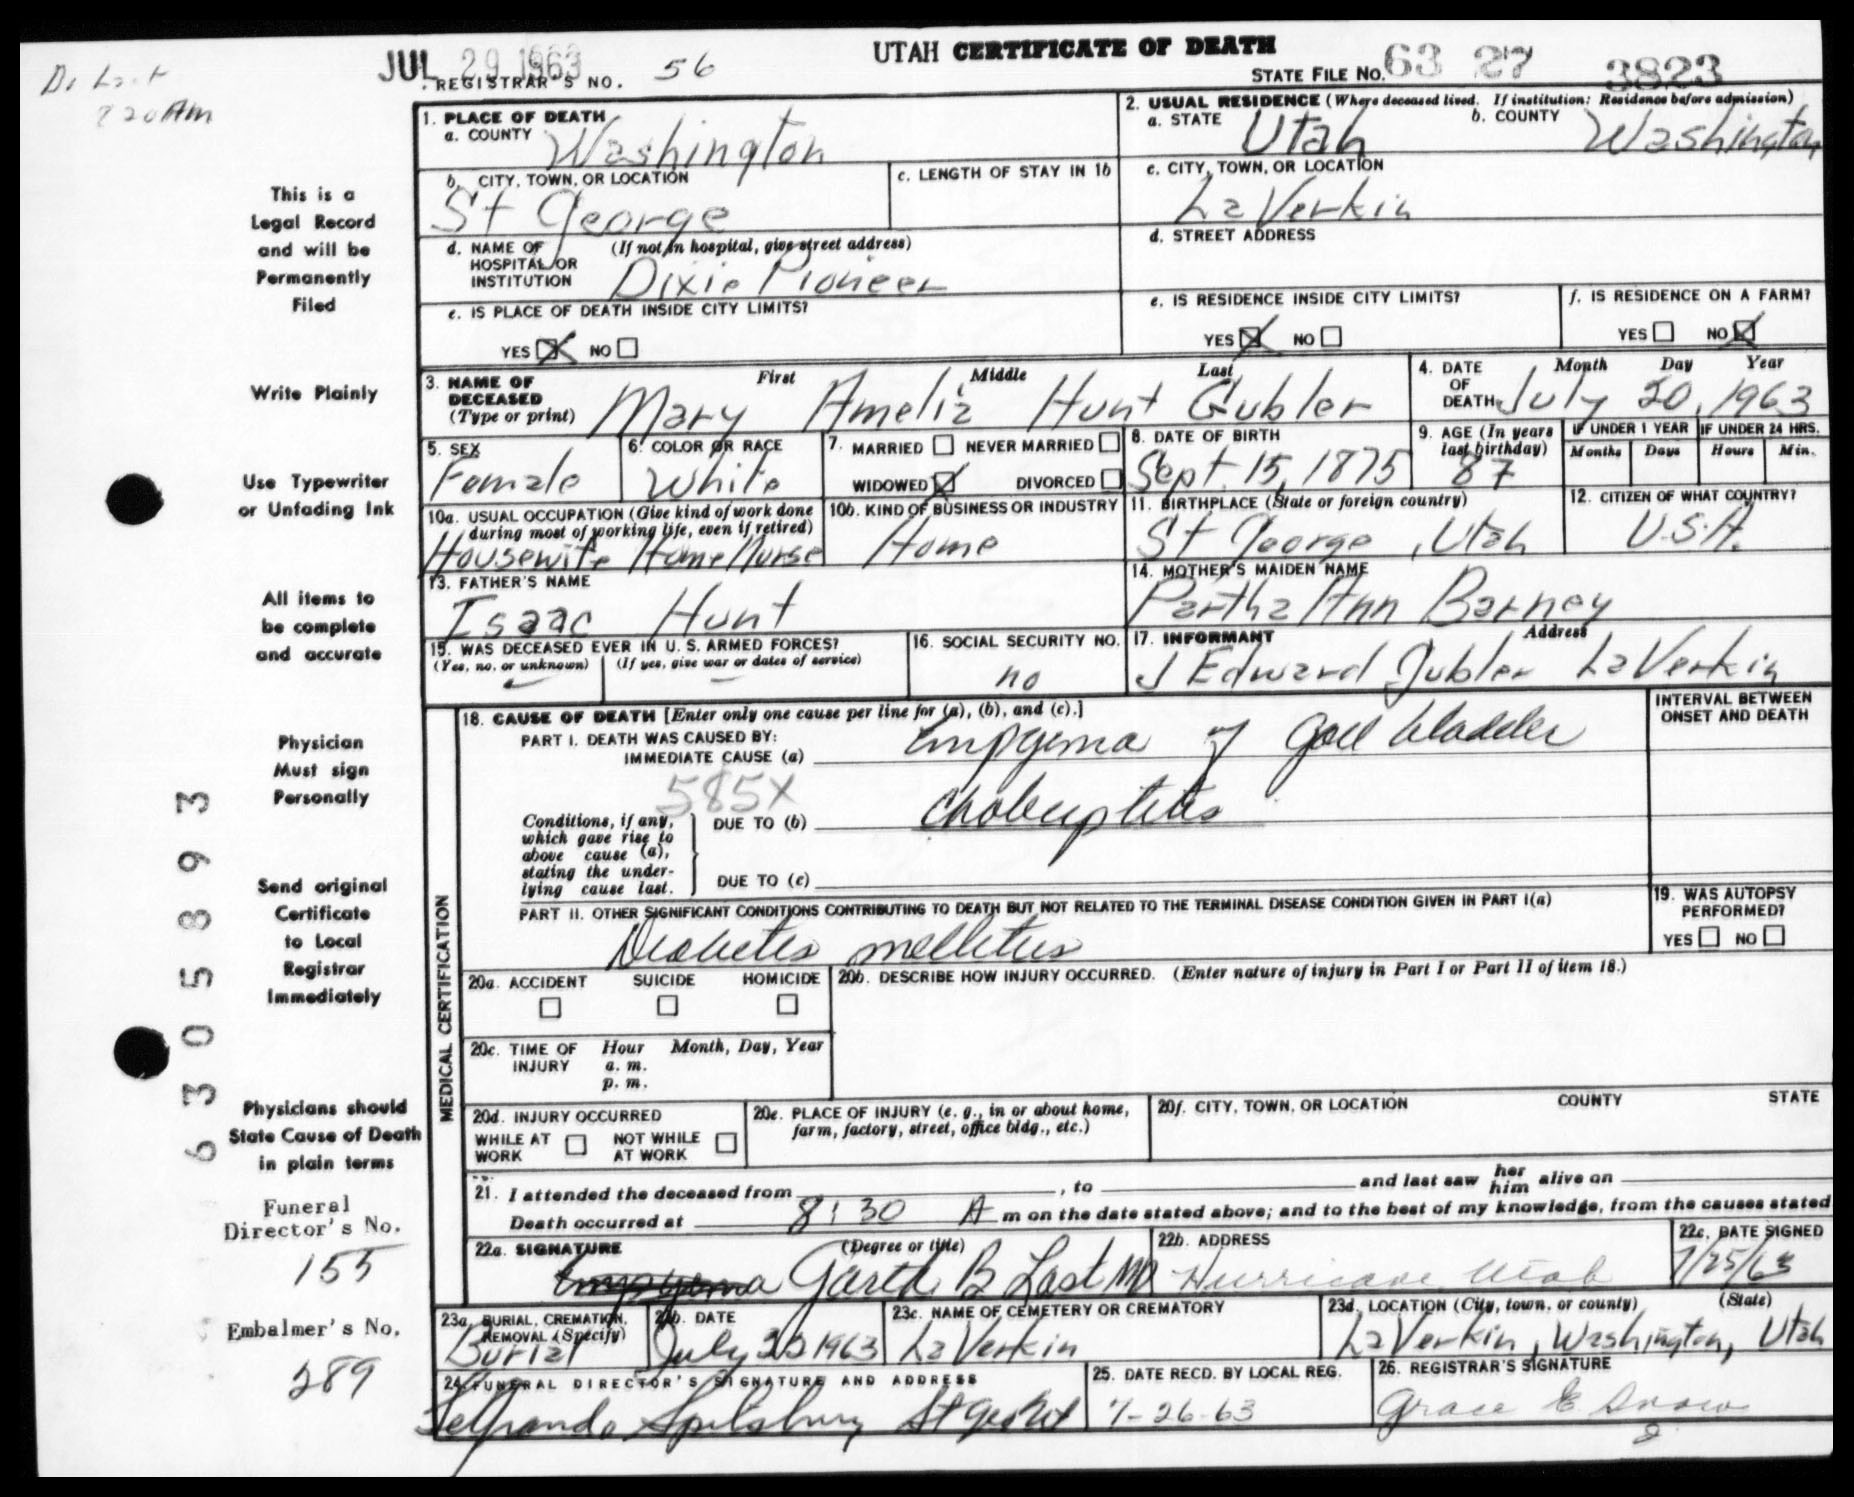 Dr Last
JUL 29 1963
UTAH CERTIFICATE OF DEATH
REGISTRAR'S NO. 56
STATE FILE NO. 63 27 3823
820 AM
This is a
Legal Record
and will be
Permanently
Filed
Write Plainly
Use Typewriter
or Unfading Ink
All items to
be complete
and accurate
Physician
Must sign
Personally
Send original
Certificate
to Local
Registrar
Immediately
Physicians should
State Cause of Death
in plain terms
Funeral
Director's No.
155
Embalmer's No.
289
6305893
1. PLACE OF DEATH
a. COUNTY Washington
b. CITY, TOWN, OR LOCATION
St George
c. LENGTH OF STAY IN 1b
d. NAME OF HOSPITAL OR INSTITUTION (If not in hospital, give street address)
Dixie Pioneer
e. IS PLACE OF DEATH INSIDE CITY LIMITS?
YES X NO
2. USUAL RESIDENCE (Where deceased lived. If institution: Residence before admission)
a. STATE Utah b. COUNTY Washington
c. CITY, TOWN, OR LOCATION
La Verkin
d. STREET ADDRESS
e. IS RESIDENCE INSIDE CITY LIMITS?
YES X NO
f. IS RESIDENCE ON A FARM?
YES NO X
3. NAME OF DECEASED (Type or print) First Middle Last
Mary Amelia Hunt Gubler
4. DATE OF DEATH Month Day Year
July 20, 1963
5. SEX
Female
6. COLOR OR RACE
White
7. MARRIED NEVER MARRIED
WIDOWED X DIVORCED
8. DATE OF BIRTH
Sept. 15, 1875
9. AGE (In years last birthday)
87
IF UNDER 1 YEAR
Months Days
IF UNDER 24 HRS.
Hours Min.
10a. USUAL OCCUPATION (Give kind of work done
during most of working life, even if retired)
Housewife Home Nurse
10b. KIND OF BUSINESS OR INDUSTRY
Home
11. BIRTHPLACE (State or foreign country)
St George, Utah
12. CITIZEN OF WHAT COUNTRY?
U.S.A.
13. FATHER'S NAME
Isaac Hunt
14. MOTHER'S MAIDEN NAME
Partha Ann Barney
15. WAS DECEASED EVER IN U. S. ARMED FORCES?
(Yes, no, or unknown) (If yes, give war or dates of service)
16. SOCIAL SECURITY NO.
no
17. INFORMANT Address
J Edward Gubler La Verkin
MEDICAL CERTIFICATION
18. CAUSE OF DEATH [Enter only one cause per line for (a), (b), and (c).]
INTERVAL BETWEEN
ONSET AND DEATH
PART I. DEATH WAS CAUSED BY:
IMMEDIATE CAUSE (a) Empyema of Gall bladder
585X
Conditions, if any,
which gave rise to
above cause (a),
stating the under-
lying cause last.
DUE TO (b)
DUE TO (c)
PART II. OTHER SIGNIFICANT CONDITIONS CONTRIBUTING TO DEATH BUT NOT RELATED TO THE TERMINAL DISEASE CONDITION GIVEN IN PART I(a)
Diabetes mellitus
19. WAS AUTOPSY
PERFORMED?
YES NO
20a. ACCIDENT SUICIDE HOMICIDE
20b. DESCRIBE HOW INJURY OCCURRED. (Enter nature of injury in Part I or Part II of item 18.)
20c. TIME OF INJURY Hour Month, Day, Year
a. m.
p. m.
20d. INJURY OCCURRED
WHILE AT WORK NOT WHILE AT WORK
20e. PLACE OF INJURY (e. g., in or about home,
farm, factory, street, office bldg., etc.)
20f. CITY, TOWN, OR LOCATION COUNTY STATE
21. I attended the deceased from , to and last saw her him alive on
Death occurred at 8:30 A m on the date stated above; and to the best of my knowledge, from the causes stated
22a. SIGNATURE (Degree or title)
Empyema Garth B Last MD
22b. ADDRESS
Hurricane Utah
22c. DATE SIGNED
7/25/63
23a. BURIAL, CREMATION,
REMOVAL (Specify)
Burial
23b. DATE
July 22 1963
23c. NAME OF CEMETERY OR CREMATORY
La Verkin
23d. LOCATION (City, town, or county) (State)
La Verkin, Washington, Utah
24. FUNERAL DIRECTOR'S SIGNATURE AND ADDRESS
Spilsbury St George Ut
25. DATE RECD. BY LOCAL REG.
7-26-63
26. REGISTRAR'S SIGNATURE
Grace E. Snow